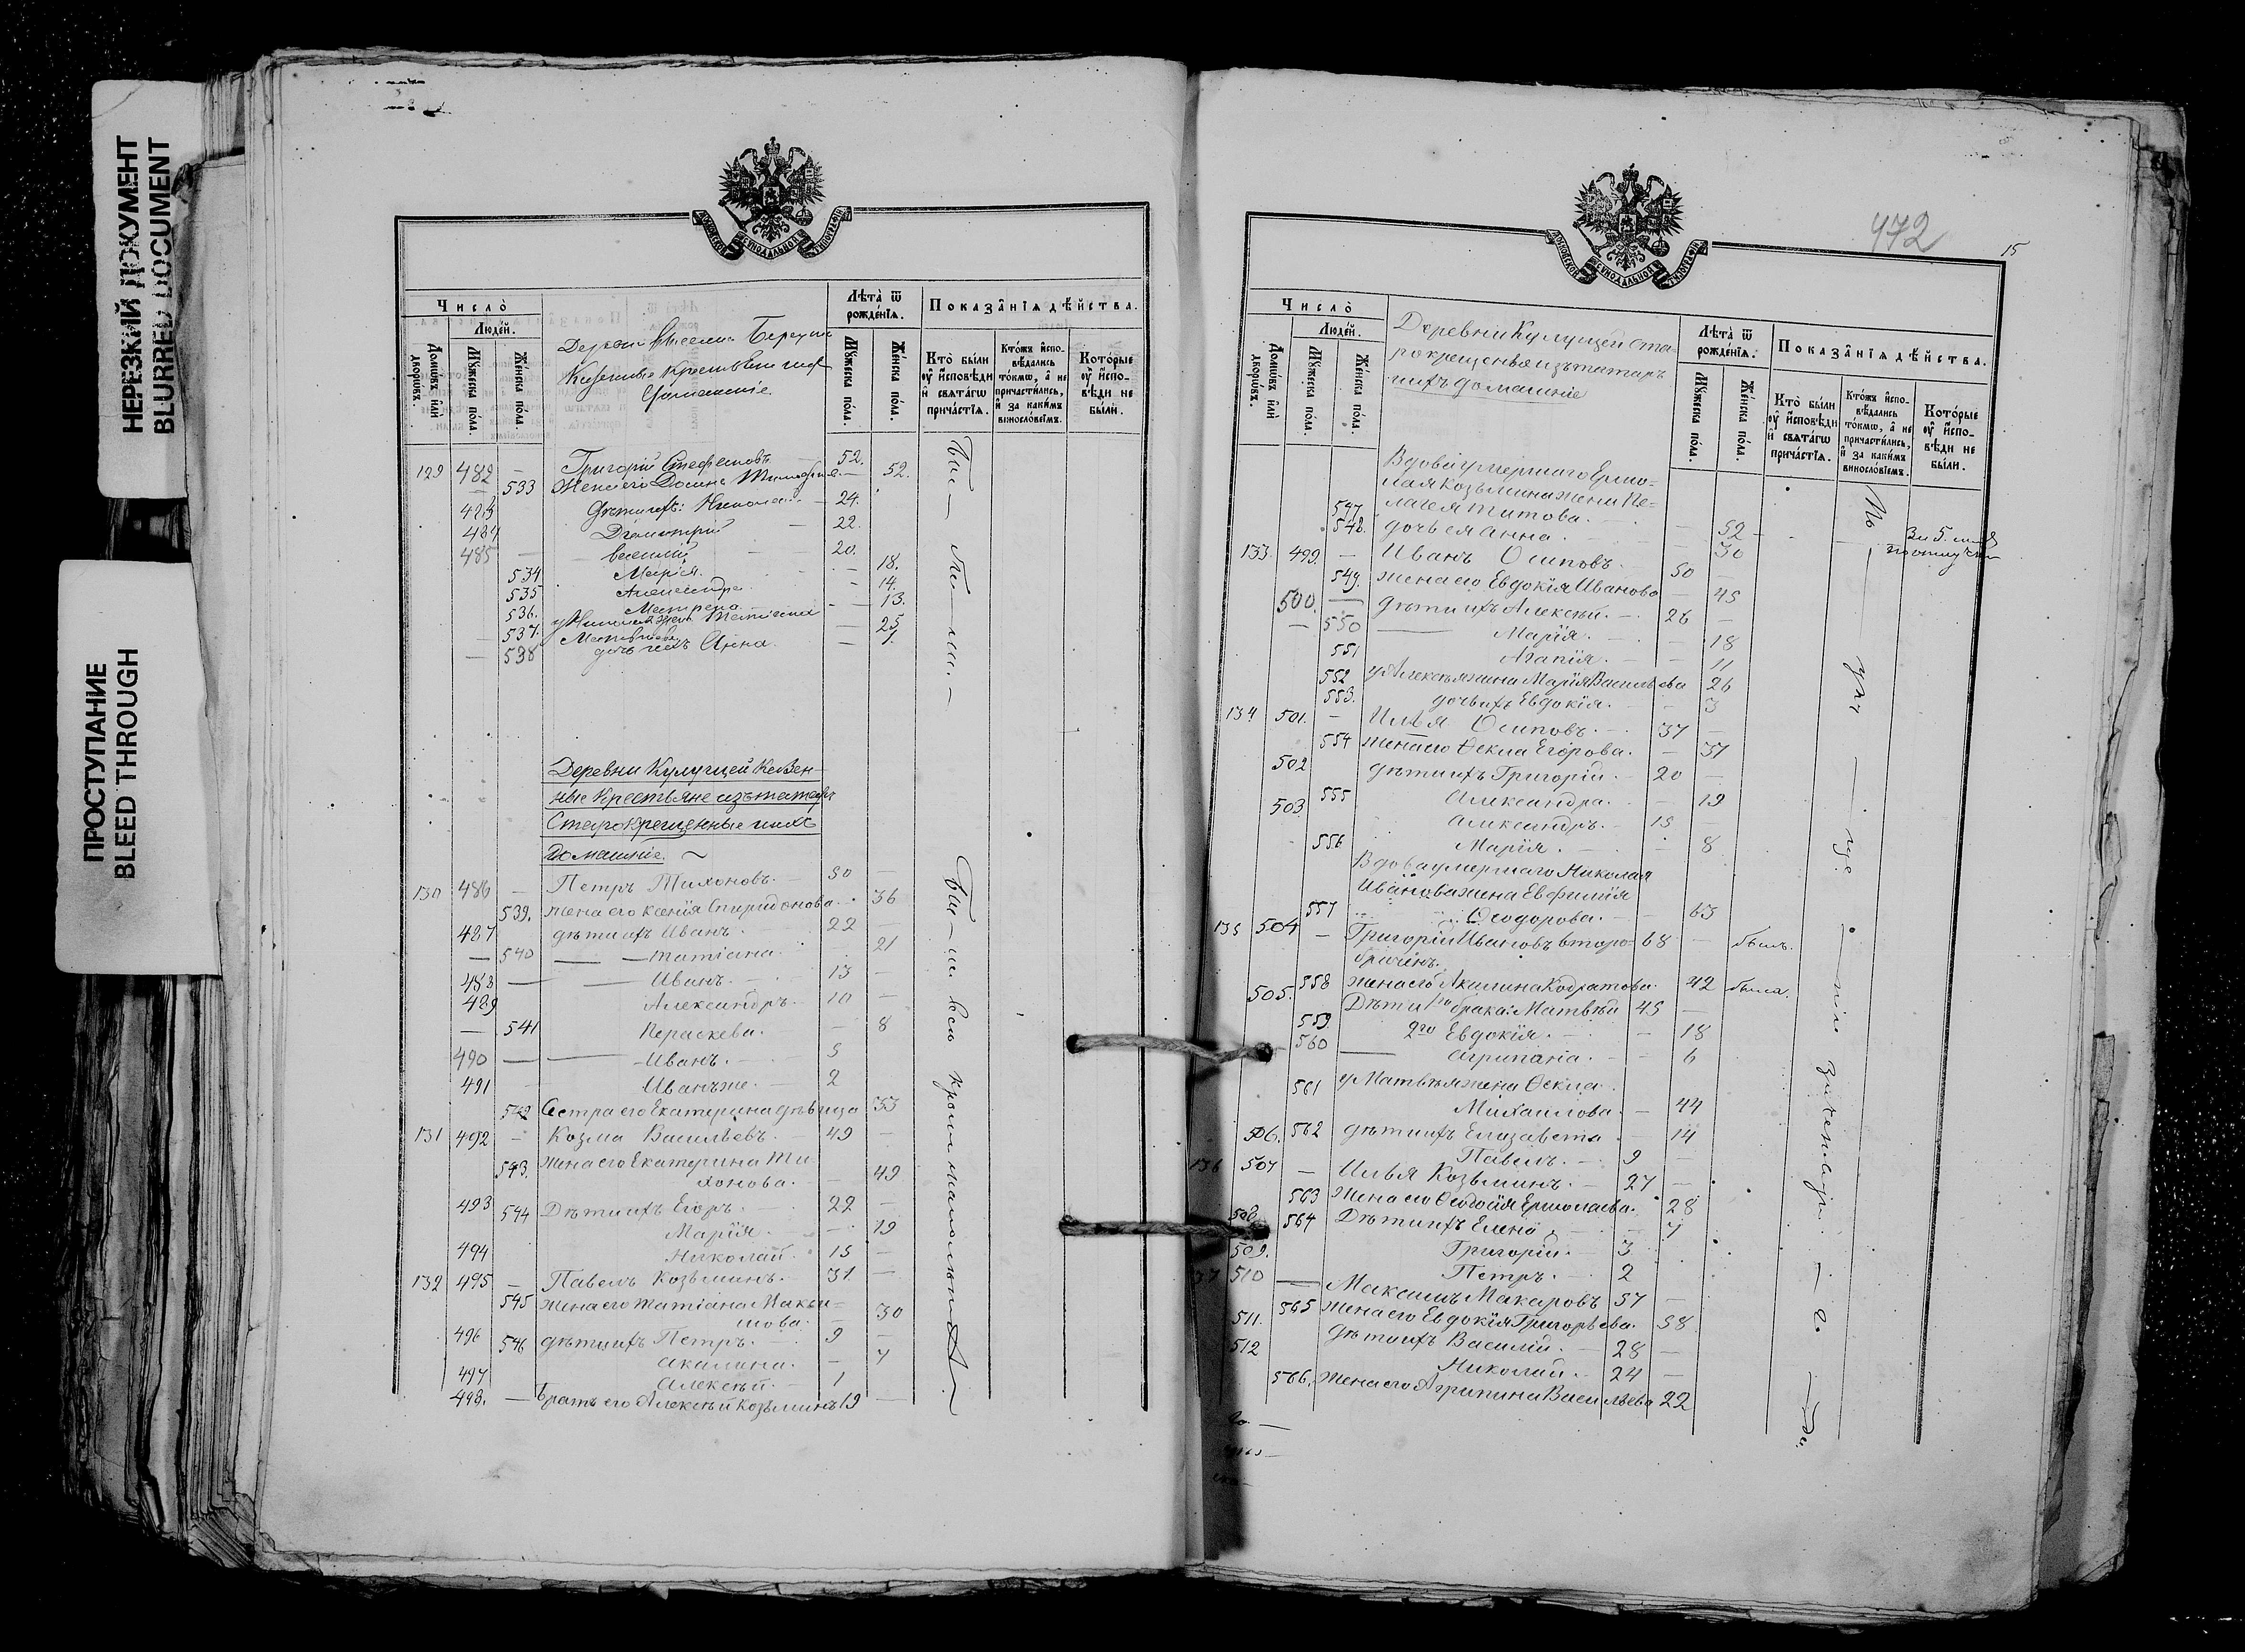 НЕРЕЗКИЙ ДОКУМЕНТ
BLURRED DOCUMENT
ПРОСТУПАНИЕ
BLEED THROUGH
МОСКОВСКОЙ СѴНОДАЛЬНОЙ ТИПОГРАФІИ
Число̀
Людей.
Домѡвъ и҆лѝ дворѡвъ.
Мꙋ́жеска пола.
Же́нска пола.
Лѣта̀ ѿ рожде́нїѧ.
Мꙋ́жеска по́ла.
Же́нска по́ла.
Показа̑нїѧ дѣ́йства.
Кто̀ бы́ли оу҆ и҆сповѣди и҆ свѧта́гѡ прича́стїѧ.
Кто́жъ и҆спо-
вѣдались
то́кмѡ, а҆ не
причасти́лись,
и҆ за каки́мъ
винословїемъ.
Кото́рые
оу҆ и҆спо-
вѣди не
бы́ли.
домашніе
129 482 — Григорій Стефановъ 52.
533 Жена его 52.
483 Дѣти ихъ: Николай 24.
484 Димитрій 22.
485 Василій 20.
534 Марія. 18.
535 Александра 14.
536. Матрена 13.
537. у Николая жена Татіана 25
538 дочь ихъ Анна. 1.
Деревни Кулущей Казен-
ные Крестьяне изъ татаръ
Старокрещенные и ихъ
Домашніе.
130 486 — Петръ Тихоновъ. — 50 —
539. жена его Ксенія Спиридонова 36
487 дѣти ихъ Иванъ. 22 —
— 540 Татіана 21
488 — Иванъ. 13 —
489 Александръ. 10 —
— 541 Параскева. — 8
490 — Иванъ. 5
491 Иванъ же. 2
542 Сестра его Екатерина дѣвица 53
131 492 — Козма Васильевъ. — 49 —
543. жена его Екатерина Ти
хонова. — 49
493 544 Дѣти ихъ Егоръ. 22 —
Марія. — 19
494 Николай 15 —
132 495 — Павелъ Козьминъ. 31. —
545 жена его Татіана Макси=
мова. — 30
496 546 дѣти ихъ Петръ. 9 —
Акилина. — 7
497 Алексѣй. 1
498. — братъ его Алексѣй Козьминъ 19 —
472
15
МОСКОВСКОЙ СѴНОДАЛЬНОЙ ТИПОГРАФІИ
Число̀
Людей.
Домѡвъ и҆лѝ дворѡвъ.
Мꙋ́жеска пола.
Же́нска пола.
Деревни Кулущей Ста=
рокрещеные изъ татаръ
и ихъ домашніе
Лѣта̀ ѿ рожде́нїѧ.
Мꙋ́жеска по́ла.
Же́нска по́ла.
Показа̑нїѧ дѣ́йства.
Кто̀ бы́ли оу҆ и҆сповѣди и҆ свѧта́гѡ прича́стїѧ.
Кто́жъ и҆спо-
вѣдались
то́кмѡ, а҆ не
причасти́лись,
и҆ за каки́мъ
винословїемъ.
Кото́рые
оу҆ и҆спо-
вѣди не
бы́ли.
Вдова умершаго Ермо=
лая Козьмина жена Пе=
547 лагея Титова. — 52
548. дочь ея Анна — 30
133. 499. — Иванъ Осиповъ. 50 —
549. жена его Евдокія Иванова — 45
500. — дѣти ихъ Алексѣй. — 26 —
— 550 — Марія. — 18
551 Агапія. — 11
552 у Алексѣя жена Марія Васильева 26
553. дочь ихъ Евдокія. — 3
134 501. — Илья Осиповъ. 37 —
554 жена его Ѳекла Егорова. — 37
502 дѣти ихъ Григорій. — 20 —
555 Александра. — 19
503 Александръ. — 15
556 Марія. 8
Вдова умершаго Николая
Иванова жена Евфимія
557 Ѳеодорова. — 63
135 504 — Григорій Ивановъ второ= 68 — былъ.
брачный.
558 жена его Акилина Кодратова 42 была.
505. Дѣти 1го брака: Матвѣй 45 —
559 2го Евдокія. — 18
560 — Агрипина. — 6
561 у Матвѣя жена Ѳекла
Михаилова. — 44
506. 562 дѣти ихъ Елизавета — 14
Павелъ. — 9 —
136 507 — Илья Козьминъ. — 27 —
563 жена его Ѳеодосія Ермолаева. 28
508 564 Дѣти ихъ Елена 7
509. Григорій. — 3
Петръ. — 2
37 510 — Максимъ Макаровъ 57 —
565 жена его Евдокія Григорьева. 58
511. дѣти ихъ Василій. — 28 —
512 Николай — 24 —
566. жена его Агрипина Васильева 22